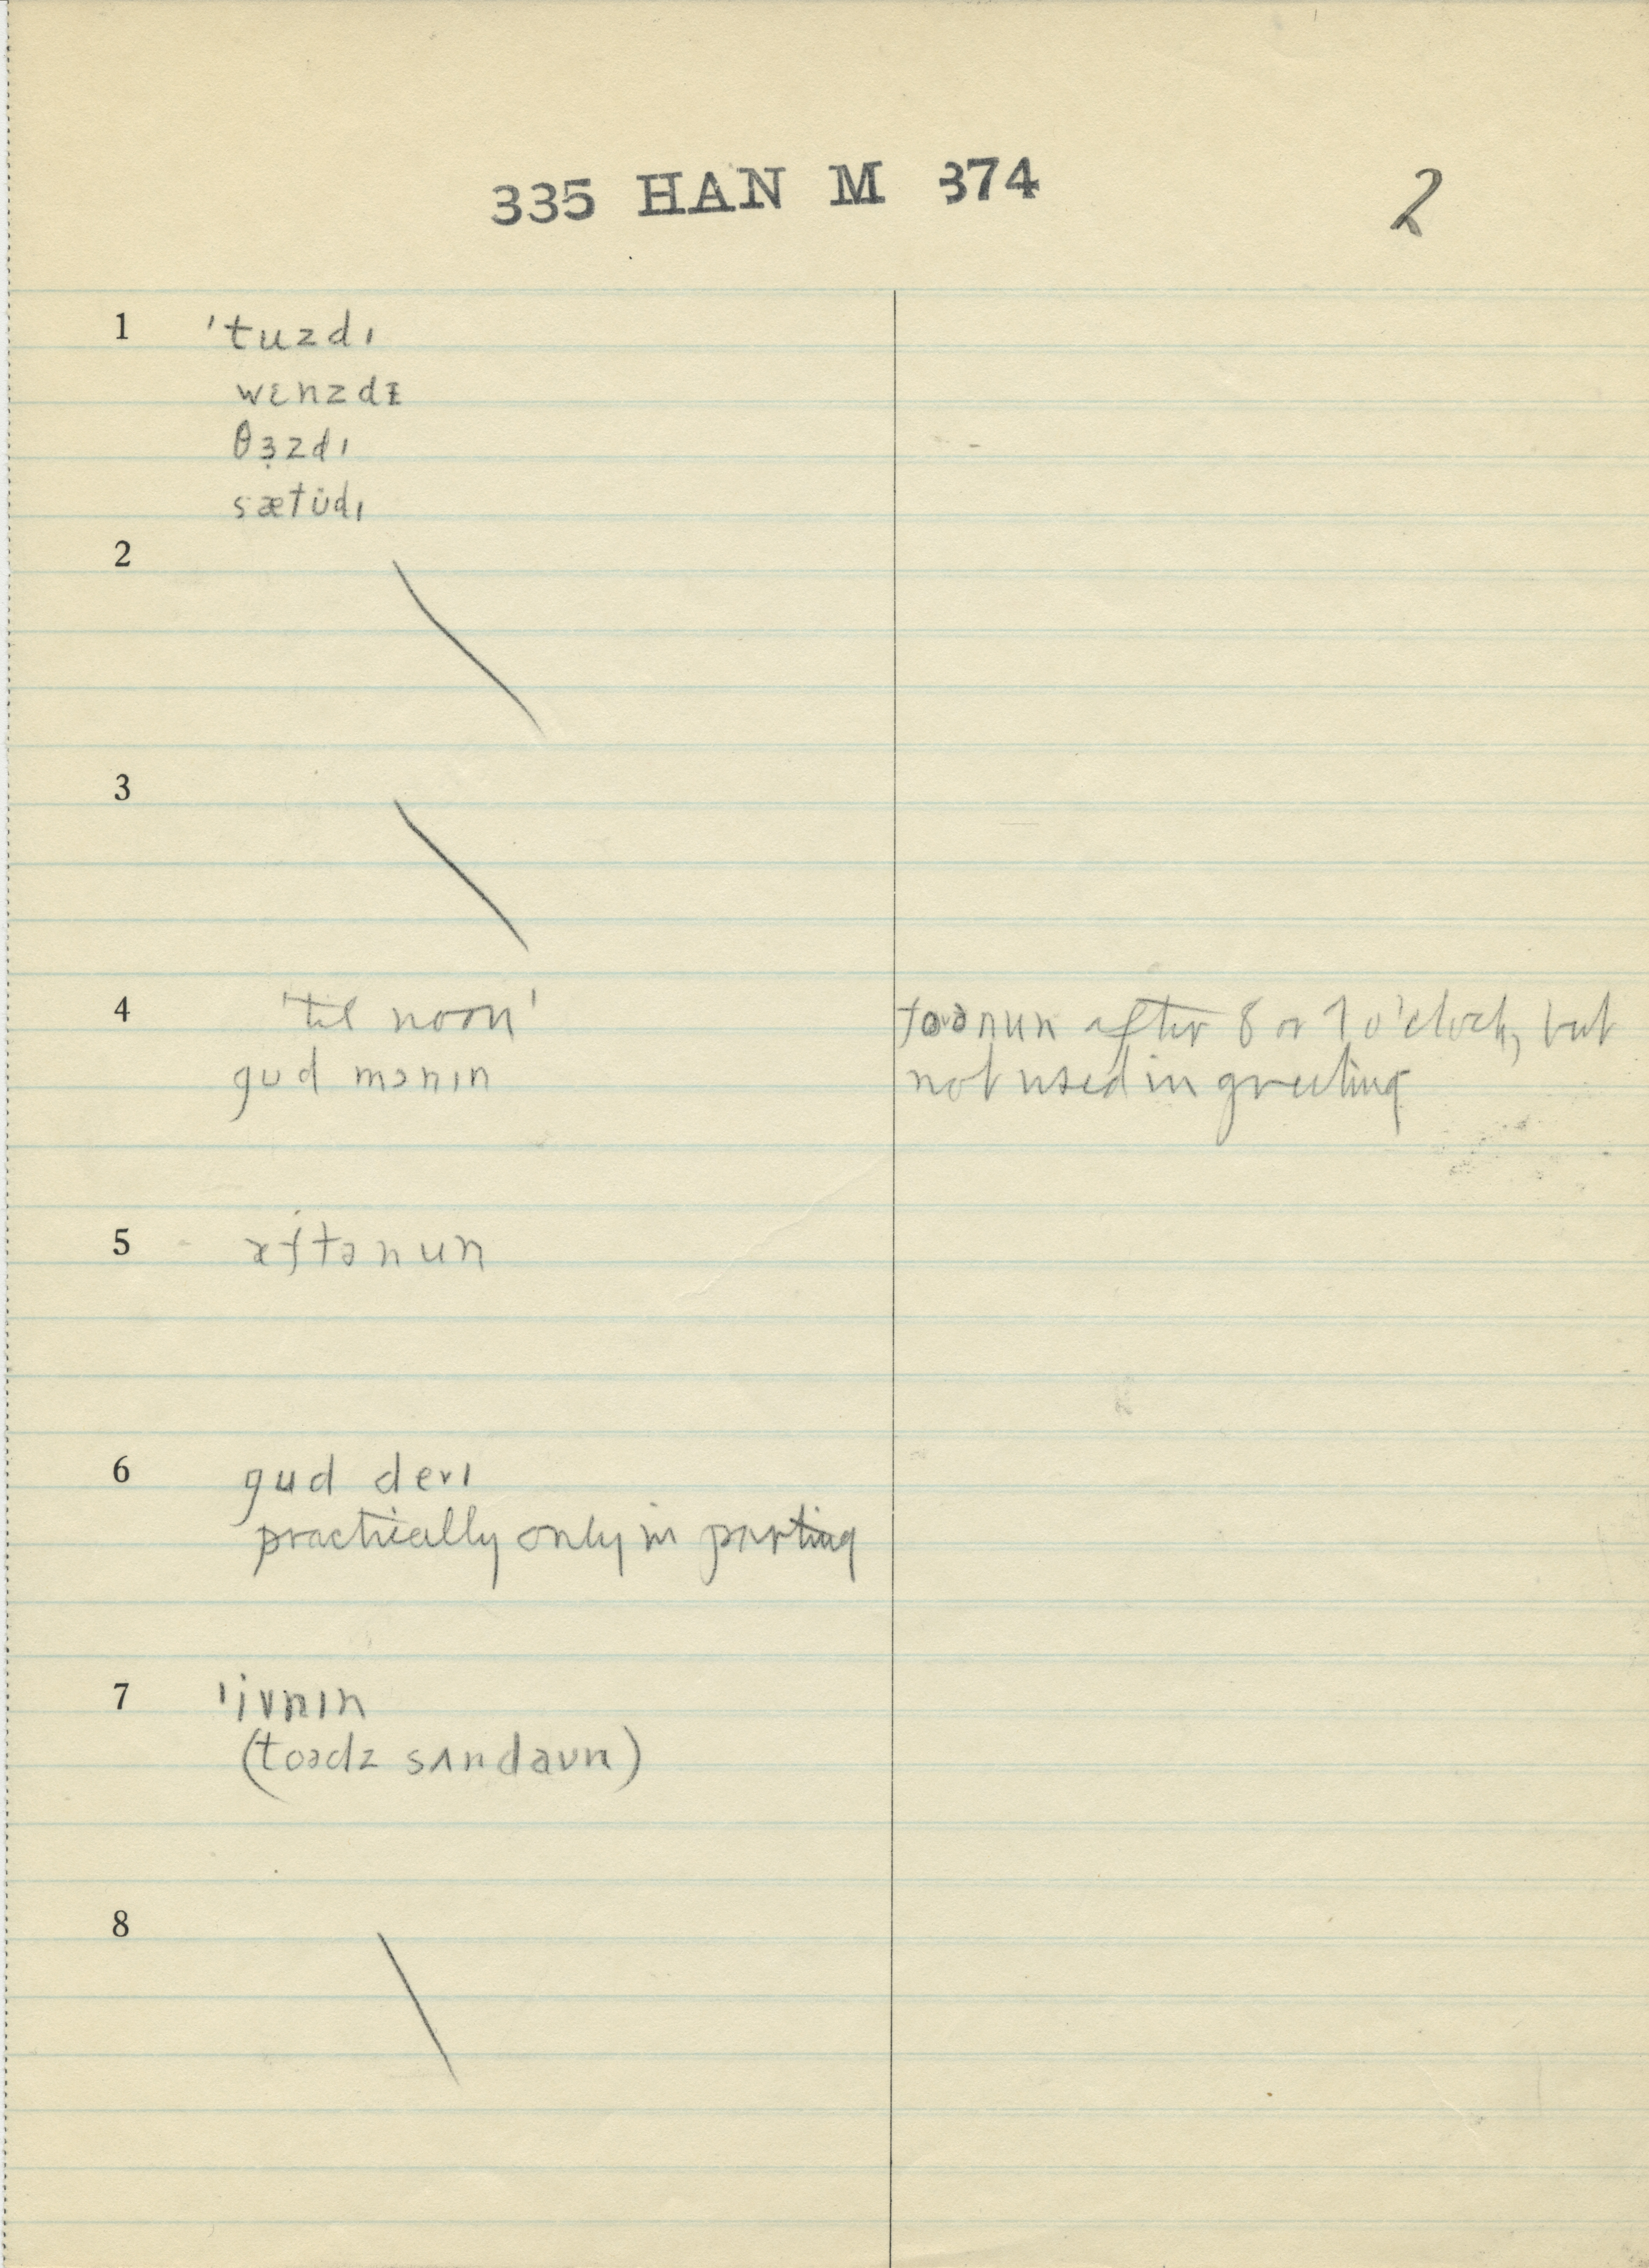 335 HAN M 374
2
1 'tuzdɪ
wɛnzdɪ
θɜ̣zdɪ
sætüdɪ
2
3
4 'til noon'
gud mɔnɪn
toənun after 8 or 9 o'clock, but
not used in greeting
5 æftənun
6 gud devɪ
practically only in parting
7 'ivnɪn
(toədz sʌndaun)
8